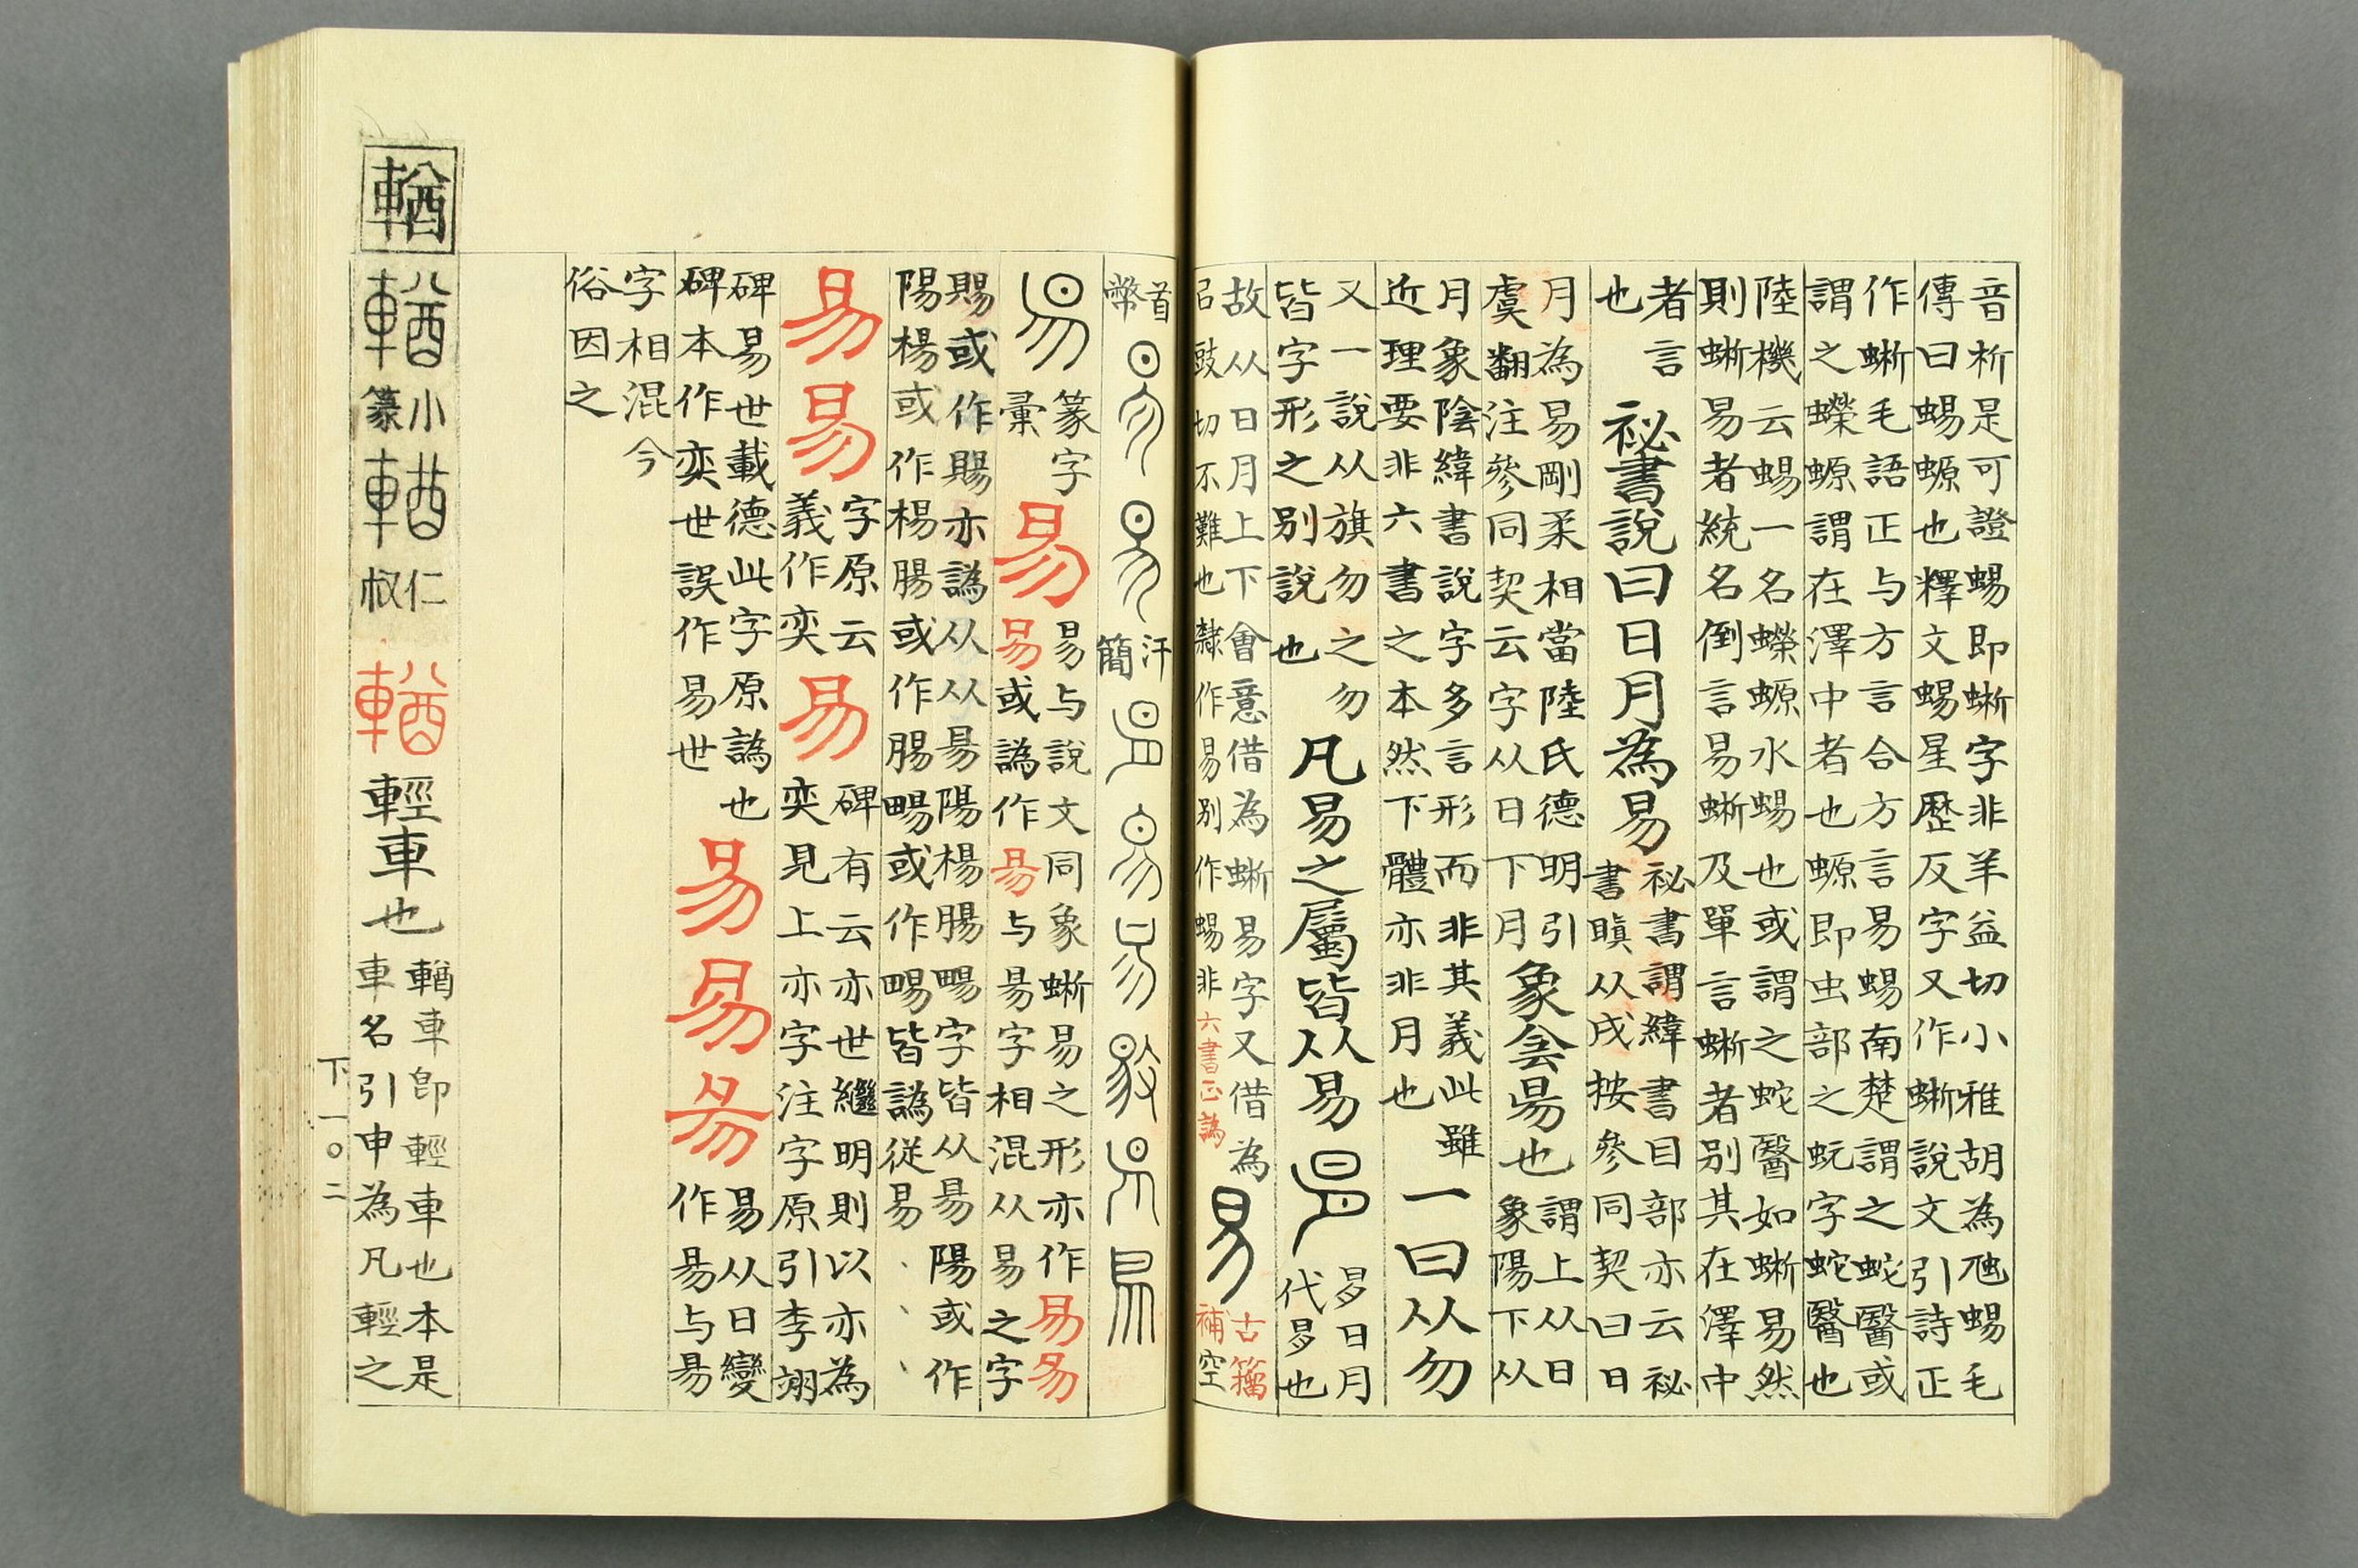 音析是可證蜴即蜥字非羊益切小雅胡為虺蜴毛
傳曰蜴螈也釋文蜴星歴反字又作蜥說文引詩正
作蜥毛語正与方言合方言易蜴南楚謂之蛇醫或
謂之蠑螈謂在澤中者也螈即虫部之蚖字蛇醫也
陸機云蜴一名蠑螈水蜴也或謂之蛇醫如蜥易然
則蜥易者統名倒言易蜥及單言蜥者別其在澤中
者言
也
祕書說曰日月為易
祕書謂緯書目部亦云祕
書瞋从戌按參同契曰日
月為易剛柔相當陸氏德明引
虞翻注參同契云字从日下月
象侌昜也
謂上从日
象陽下从
月象陰緯書說字多言形而非其義此雖
近理要非六書之本然下體亦非月也
一曰从勿
又一說从旗勿之勿
皆字形之別說也
凡易之屬皆从易
易日月
代易也
故从日月上下會意借為蜥易字又借為
㠯豉切不難也隸作易别作蜴非六書正譌
易
古籀
補空
首
幣
汗
簡
易
篆字
彙
易
易与說文同象蜥易之形亦作易易
易或譌作昜与昜字相混从易之字
賜或作賜亦譌从从昜陽楊腸暘字皆从昜陽或作
陽楊或作楊腸或作腸暘或作暘皆譌從易、、、
易易
字原云
義作奕
易
碑有云亦世繼明則以亦為
奕見上亦字注字原引李翊
碑易世載德此字原譌也
碑本作奕世誤作易世
易易易
易从日變
作昜与昜
字相混今
俗因之
輶
輶
小
篆
輶
仁
叔
輶
輕車也
輶車即輕車也本是
車名引申為凡輕之
下一〇二